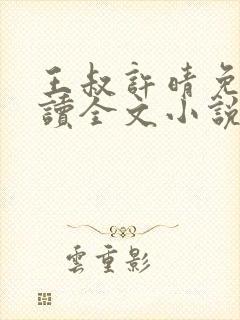 王叔許晴免
讀全文小說
雲重影